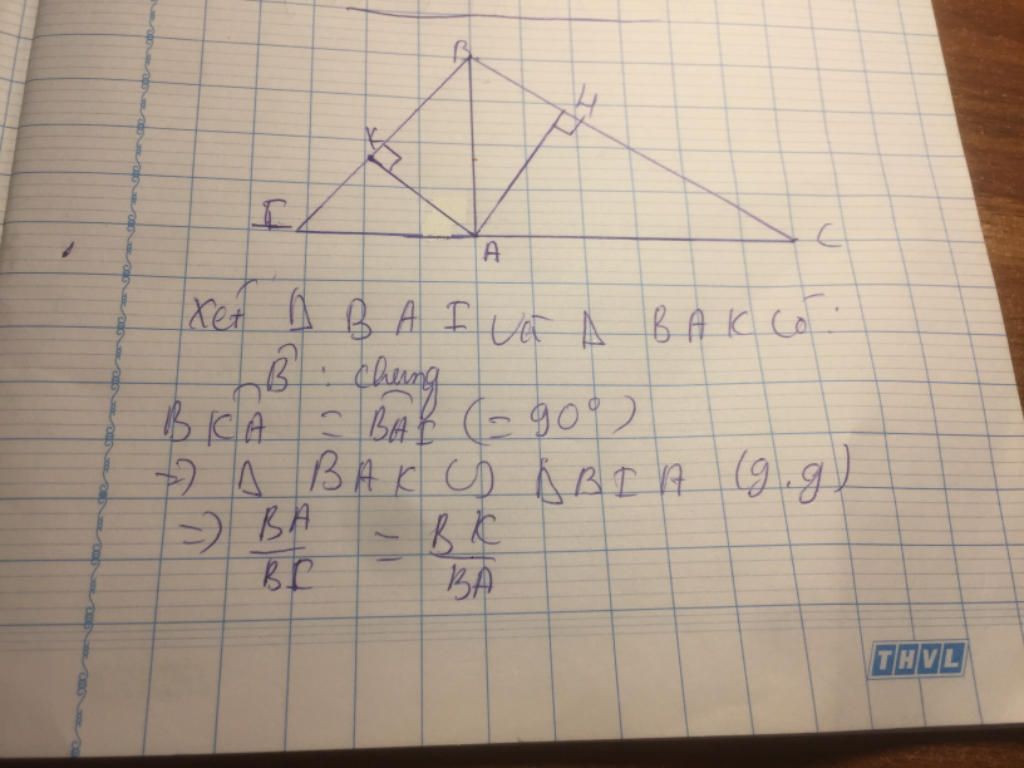 B
H
K
I
A
C
Xét Δ BAI và Δ BAK có:
B̂ : chung
BK̂A = BÂI (= 90°)
=> Δ BAK ∽ ΔBIA (g.g)
=> BA/BI = BK/BA
THVL